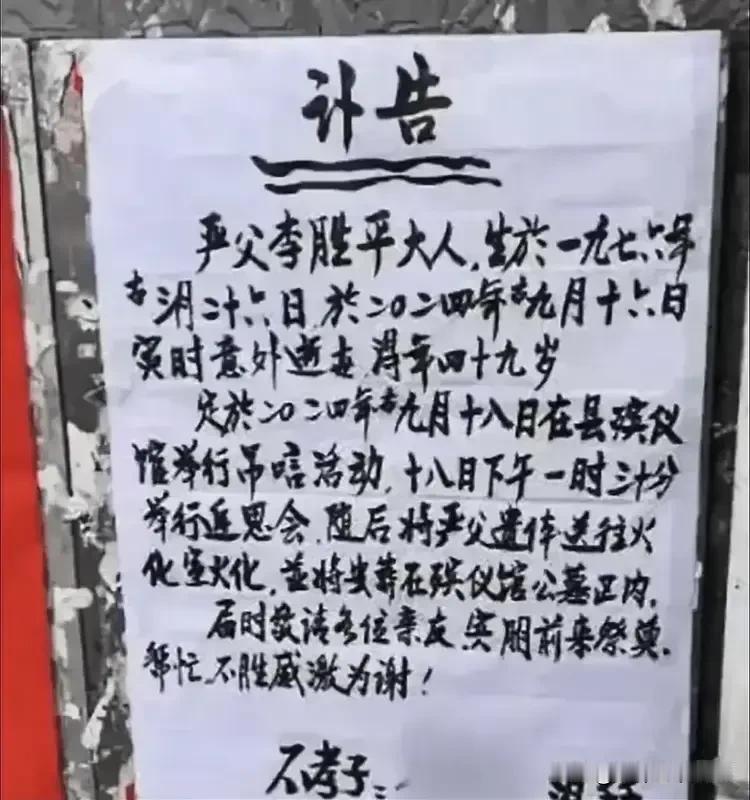 讣告
严父李胜平大人,生於一九七六年
古三月二十六日,於二〇二四年古九月十六日
寅时意外逝世,得年四十九岁
定於二〇二四年古九月十八日在县殡仪
馆举行吊唁活动,十八日下午一时三十分
举行追思会,随后将严父遗体送往火
化室火化,並将安葬在殡仪馆公墓区内,
届时敬请各位亲友、宾朋前来祭奠、
帮忙,不胜感激为谢!
不孝子: